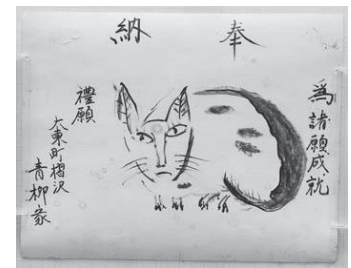 奉納
為諸願成就
禮願
大東町摺沢
青柳家